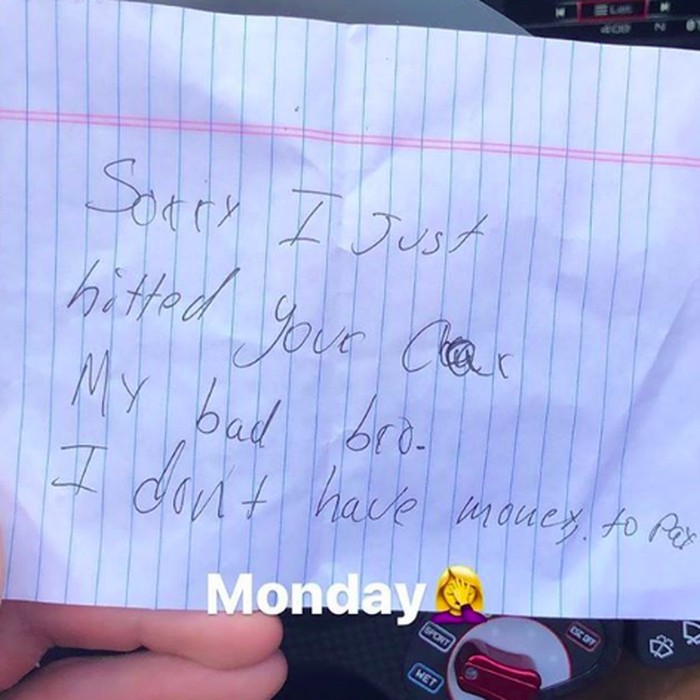 Sorry I Just
hitted your Car
My bad bro.
I don't have money. to pay
Monday🤦‍♀️
SPORT
WET
ESC OFF